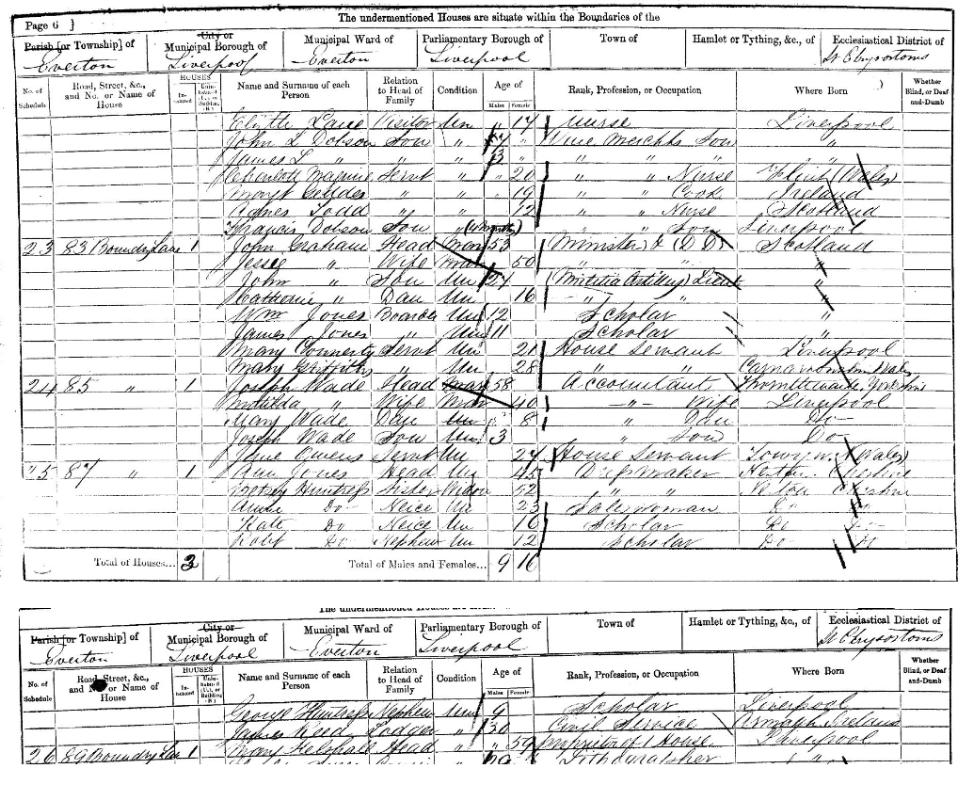 Page 6 ] The undermentioned Houses are situate within the Boundaries of the
Parish [or Township] of City or Municipal Borough of Municipal Ward of Parliamentary Borough of Town of Hamlet or Tything, &c., of Ecclesiastical District of
Everton Liverpool Everton Liverpool St Chrysostoms
No. of Schedule Road, Street, &c., and No. or Name of House HOUSES Name and Surname of each Person Relation to Head of Family Condition Age of Males Females Rank, Profession, or Occupation Where Born Whether Blind, or Deaf-and-Dumb
Lane Visitor Un " 17 Nurse Liverpool
John L Dobson Son " " Wine Merchts Son "
James L " " " 3 " " " "
Charlotte Maguire Servt " " 20 " " Nurse Flint (Wales)
" " " 19 " " Cook Ireland
Agnes Todd " " 12 " " Nurse Scotland
Francis Dobson Son " " Son Liverpool
23 83 Boundry Lane 1 John Graham Head Mar 53 Minister & (D D) Scotland
Jessie " Wife Mar 50 " " "
John " Son Un 21 (Militia Artillery) Lieut "
Catherine " Dau Un 16 " " "
Wm Jones Boarder " 12 Scholar "
James Jones Un 11 Scholar "
Mary Servt Un 21 House Servant Liverpool
Mary Griffiths " Un 28 " " Wales
24 85 " 1 Joseph Wade Head Mar 58 Accountant
Matilda " Wife Mar 40 -"- Wife Liverpool
Mary Wade Dau Un 8 " Dau Do
Joseph Wade Son Un 3 " Son Do
Jane Owens Servt Un 24 House Servant Towyn N (Wales)
25 87 " 1 Ann Jones Head Un 45 Dress Maker Cheshire
Betsey Huntress Sister Widow 52 " " Neston Cheshire
Annie Do Neice Un 23 Sales woman Do "
Kate Do Neice Un 16 Scholar Do Do
Robt Do Nephew Un 12 Scholar Do Do
Total of Houses... 3 Total of Males and Females... 9 16
The undermentioned Houses are
Parish [or Township] of City or Municipal Borough of Municipal Ward of Parliamentary Borough of Town of Hamlet or Tything, &c., of Ecclesiastical District of
Everton Liverpool Everton Liverpool St Chrysostoms
No. of Schedule Road, Street, &c., and No. or Name of House HOUSES Name and Surname of each Person Relation to Head of Family Condition Age of Males Females Rank, Profession, or Occupation Where Born Whether Blind, or Deaf and-Dumb
George Huntress Nephew Un 9 Scholar Liverpool
James Reed Lodger " 30 Civil Service Armagh Ireland
26 89 Boundry Lane 1 Mary Head " 59 Proprietor of 1 House Liverpool